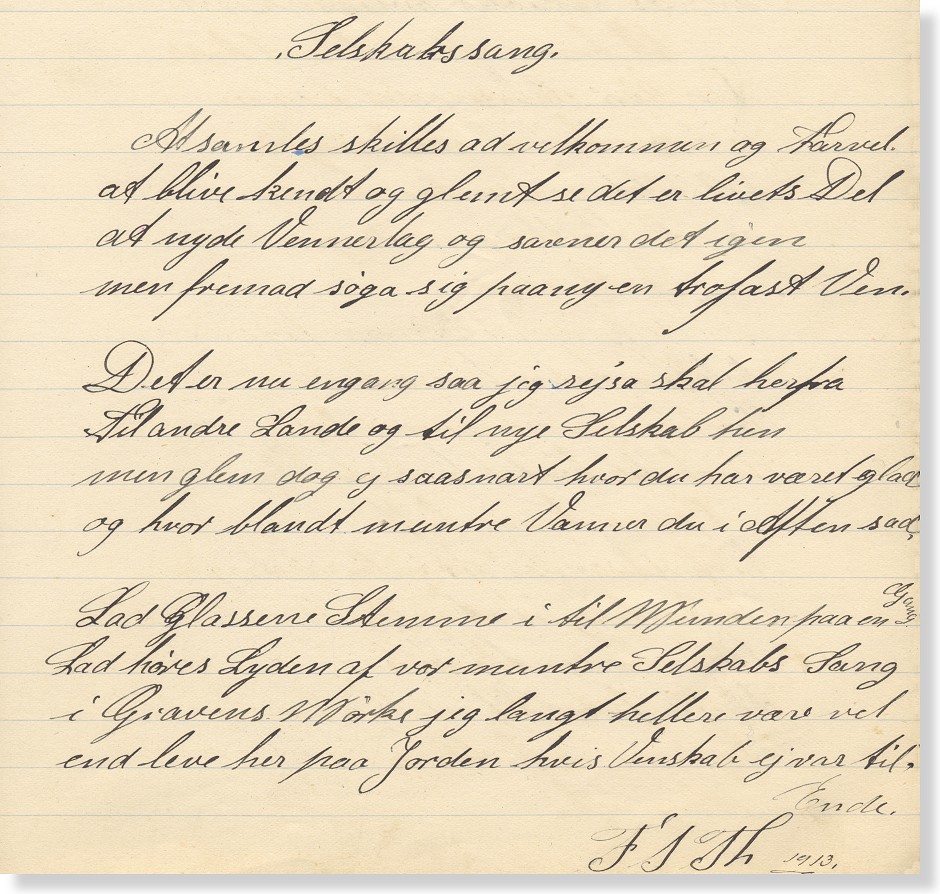 Selskabssang.
At samles skilles ad velkommen og Farvel.
at blive kendt og glemt se det er livets Del
at nyde Vennerlag og savner det igen
men fremad søga sig paany en trofast Ven.
Det er nu engang saa jeg rejsa skal herfra
Til andre Lande og til nye Selskab hen
men glem dog ej saasnart hvor du har været glad
og hvor blandt muntre Vanner du i Aften sad,
Lad Glassene Stemme i til Munden paa en Gang.
Lad høres Lyden af vor muntre Selskabs Sang
i Gravens Mörke jeg langt hellere være vel
end leve her paa Jorden hvis Venskab ej var til.
Ende.
F S Th 1913.